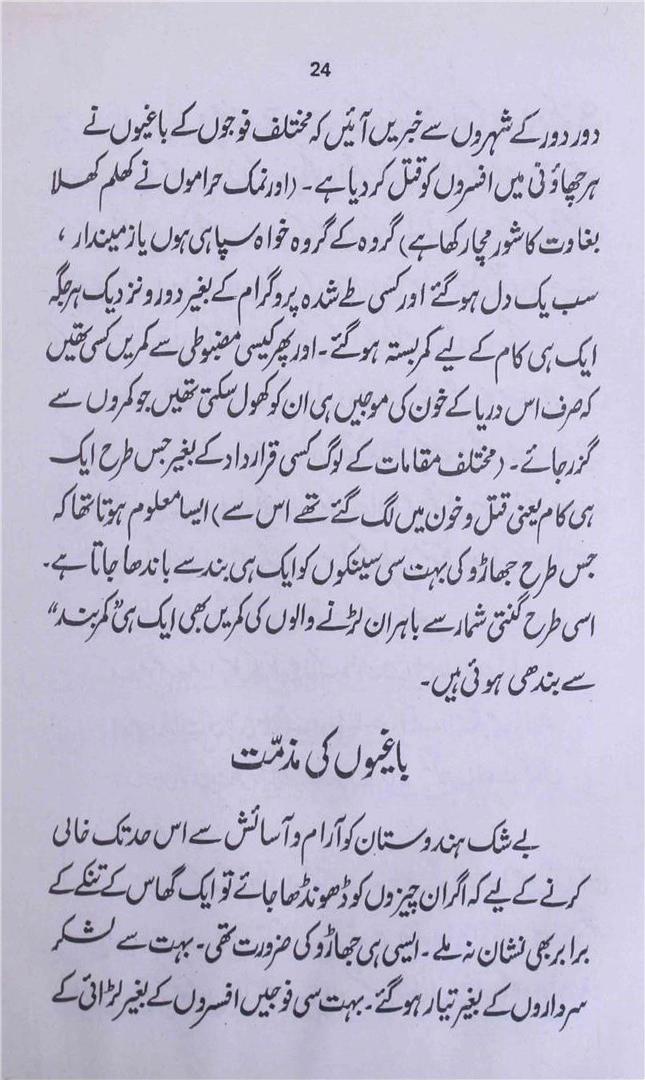 24
دور دور کے شہروں سے خبریں آئیں کہ مختلف فوجوں کے باغیوں نے
ہر چھاؤنی میں افسروں کو قتل کر دیا ہے۔ (اور نمک حراموں نے کھلم کھلا
بغاوت کا شور مچا رکھا ہے) گروہ کے گروہ خواہ سپاہی ہوں یا زمیندار ،
سب یک دل ہو گئے اور کسی طے شدہ پروگرام کے بغیر دور و نزدیک ہر جگہ
ایک ہی کام کے لیے کمر بستہ ہو گئے۔ اور پھر کیسی مضبوطی سے کمریں کسی تھیں
کہ صرف اس دریا کے خون کی موجیں ہی ان کو کھول سکتی تھیں جو کمروں سے
گزر جائے۔ (مختلف مقامات کے لوگ کسی قرارداد کے بغیر جس طرح ایک
ہی کام یعنی قتل و خون میں لگ گئے تھے اس سے) ایسا معلوم ہوتا تھا کہ
جس طرح جھاڑو کی بہت سی سینکوں کو ایک ہی بند سے باندھا جاتا ہے۔
اسی طرح گنتی شمار سے باہر ان لڑنے والوں کی کمریں بھی ایک ہی "کمر بند"
سے بندھی ہوئی ہیں۔
باغیوں کی مذمّت
بے شک ہندوستان کو آرام و آسائش سے اس حد تک خالی
کرنے کے لیے کہ اگر ان چیزوں کو ڈھونڈھا جائے تو ایک گھاس کے تنکے کے
برابر بھی نشان نہ ملے۔ ایسی ہی جھاڑو کی ضرورت تھی۔ بہت سے لشکر
سرداروں کے بغیر تیار ہو گئے۔ بہت سی فوجیں افسروں کے بغیر لڑائی کے